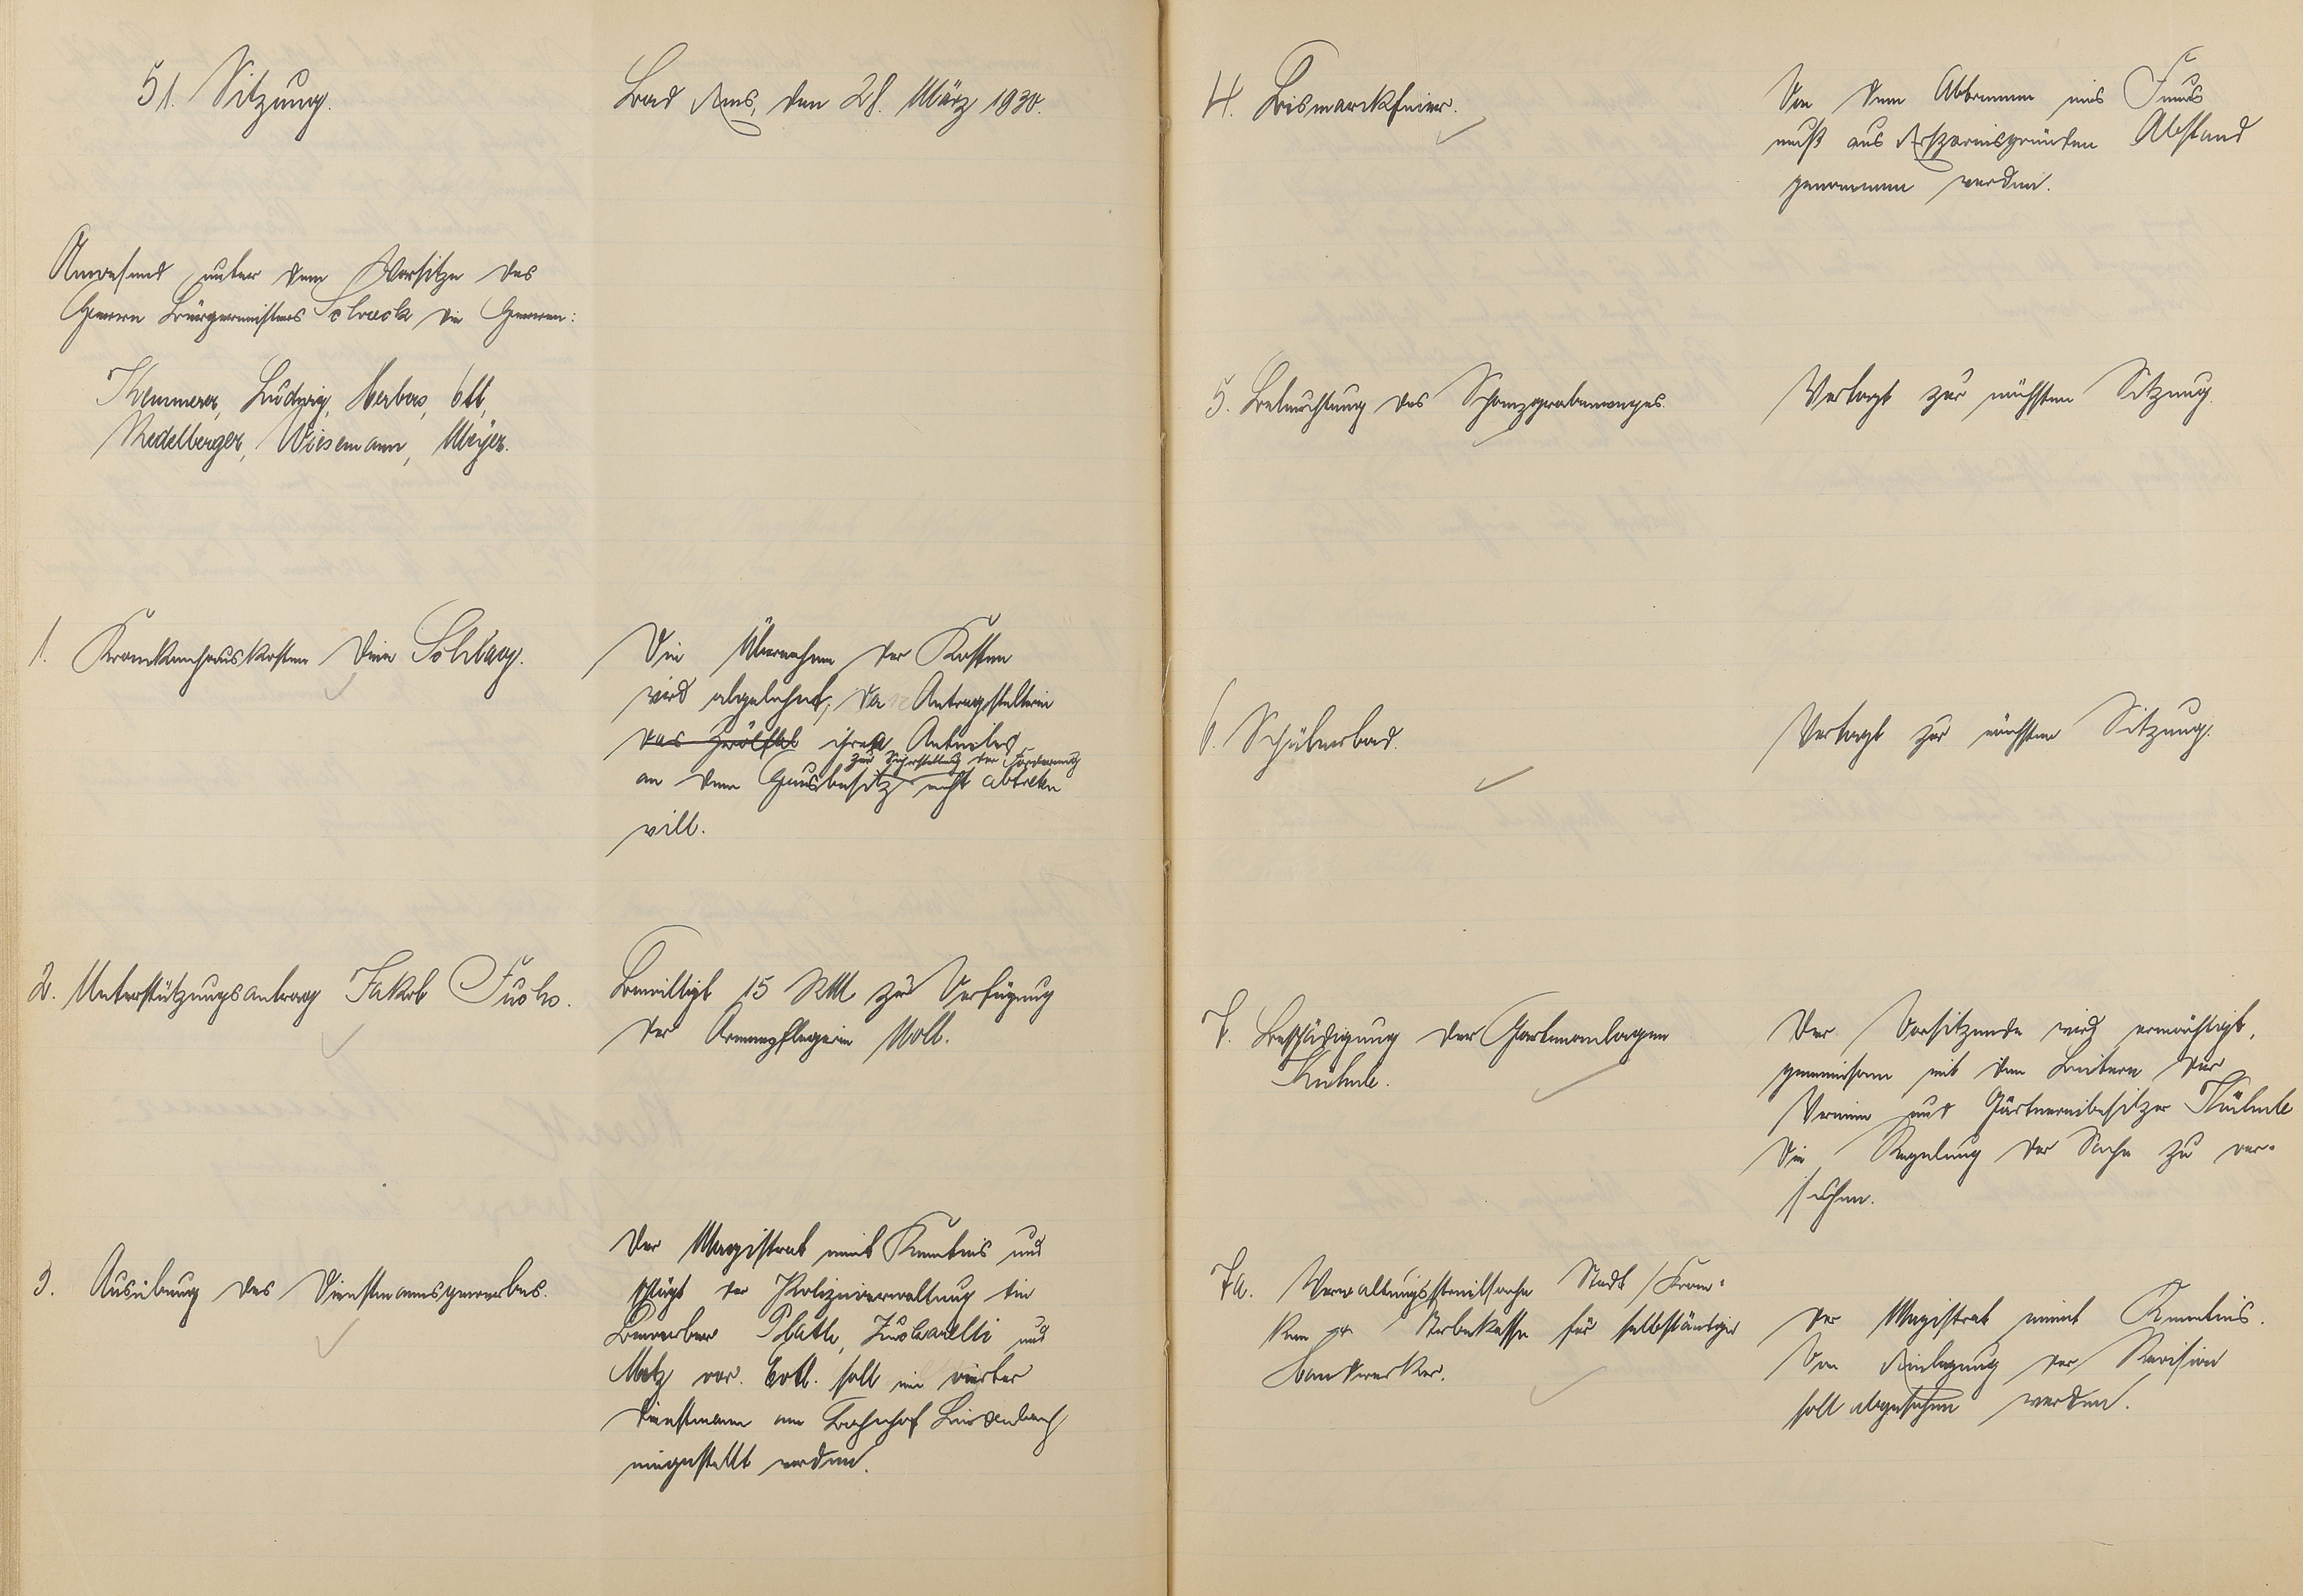 51. Sitzung.
Bad Ems, den 28. März 1930.
Anwesend unter dem Vorsitze des
Herrn Bürgermeisters Schraeck die Herren:
Kemmerer, Ludwig, Herbers, Ott,
Redelberger, Wiesemann, Meyer.
1. Krankenhauskosten Frau Schlaug.
Die Übernahme der Kosten
wird abgelehnt, da Antragstellerin
das Zwölftel ihres Anteiles
zur Sicherstellung der Forderung
an dem Hausbesitz nicht abtreten
will.
2. Unterstützungsantrag Jakob Fuchs.
Bewilligt 15 RM zur Verfügung
der Armenpflegerin Moll.
3. Ausübung des Dienstmannsgewerbes.
Der Magistrat nimmt Kenntnis und
schlägt der Polizeiverwaltung die
Bewerber Plath, Zuccarelli und
Metz vor. Evtl. soll ein vierter
Dienstmann am Bahnhof Lindenbach
eingestellt werden.
4. Bismarckfeier.
Von dem Abbrennen eines Feuers
muß aus Ersparnisgründen Abstand
genommen werden.
5. Beleuchtung des Schanzgrabenweges.
Vertagt zur nächsten Sitzung.
6. Schülerbad.
Vertagt zur nächsten Sitzung.
7. Beschädigung der Gartenanlagen
Kühnle.
Der Vorsitzende wird ermächtigt,
gemeinsam mit den Leitern der
Vereine und Gärtnereibesitzer Kühnle
die Regelung der Sache zu ver-
suchen.
7a. Verwaltungsstreitsache Stadt / Kran-
ken u. Sterbekasse für selbständige
Handwerker.
Der Magistrat nimmt Kenntnis.
Von Einlegung der Revision
soll abgesehen werden.